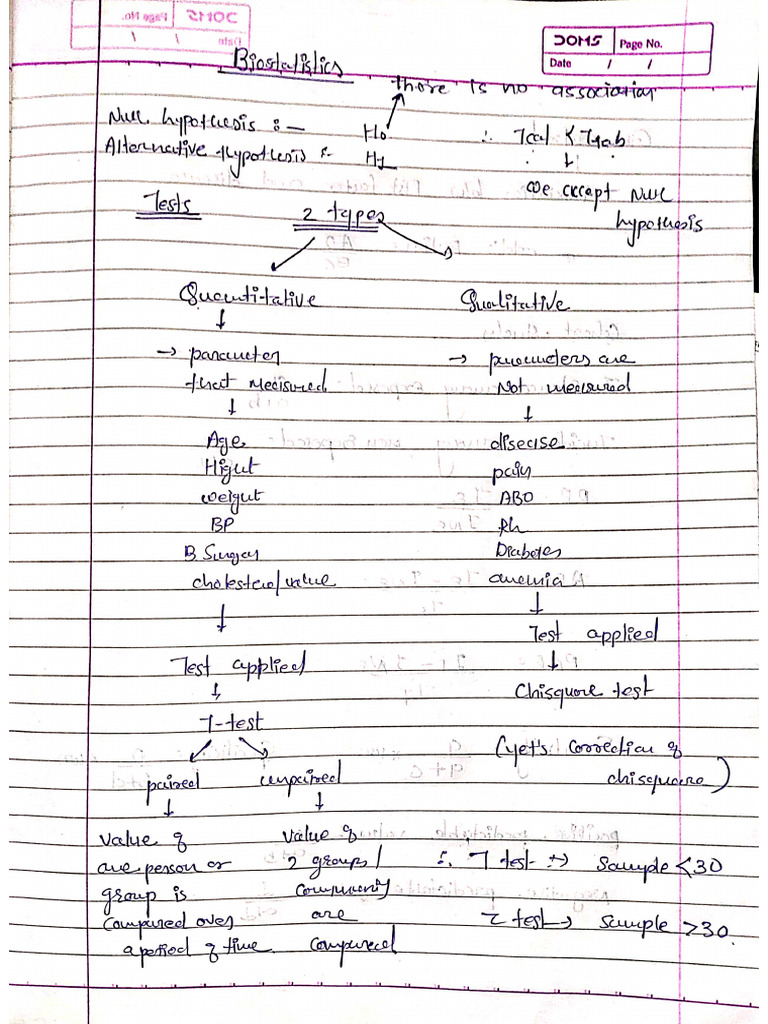 DOMS Page No.
Date / /
Biostatistics
there is no association
Null hypothesis :- Ho ∴ Tcal < Ttab
Alternative hypothesis :- H1
we except Null hypothesis
Tests 2 types
Quantitative Qualitative
→ parameter → parameters are
that measured Not measured
Age disease
Hight pain
weight ABO
BP Rh
B. Sugar Diabetes
cholesterol value anemia
Test applied
Test applied
Chisquare test
T-test
(yet's correction of
paired unpaired chisquare)
value of value of
one person or 2 groups / ∴ T test :→ sample < 30
group is community
compared over are Z test → sample > 30.
a period of time compared